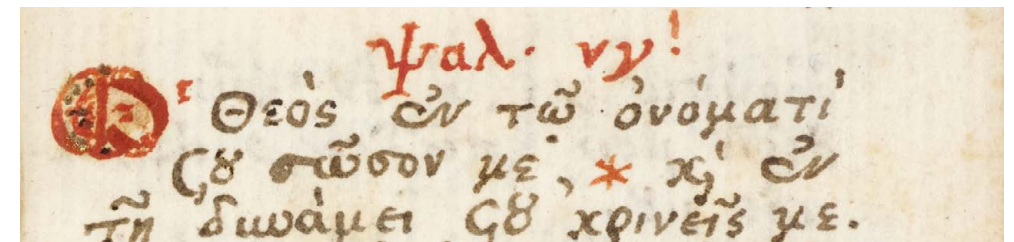 ψαλ· νγ!
Ὁ Θεὸς ἐν τῶ ὀνόματί
σου σῶσον με, * κ̀ ἐν
τῆ δυνάμει σου κρινεῖς με.